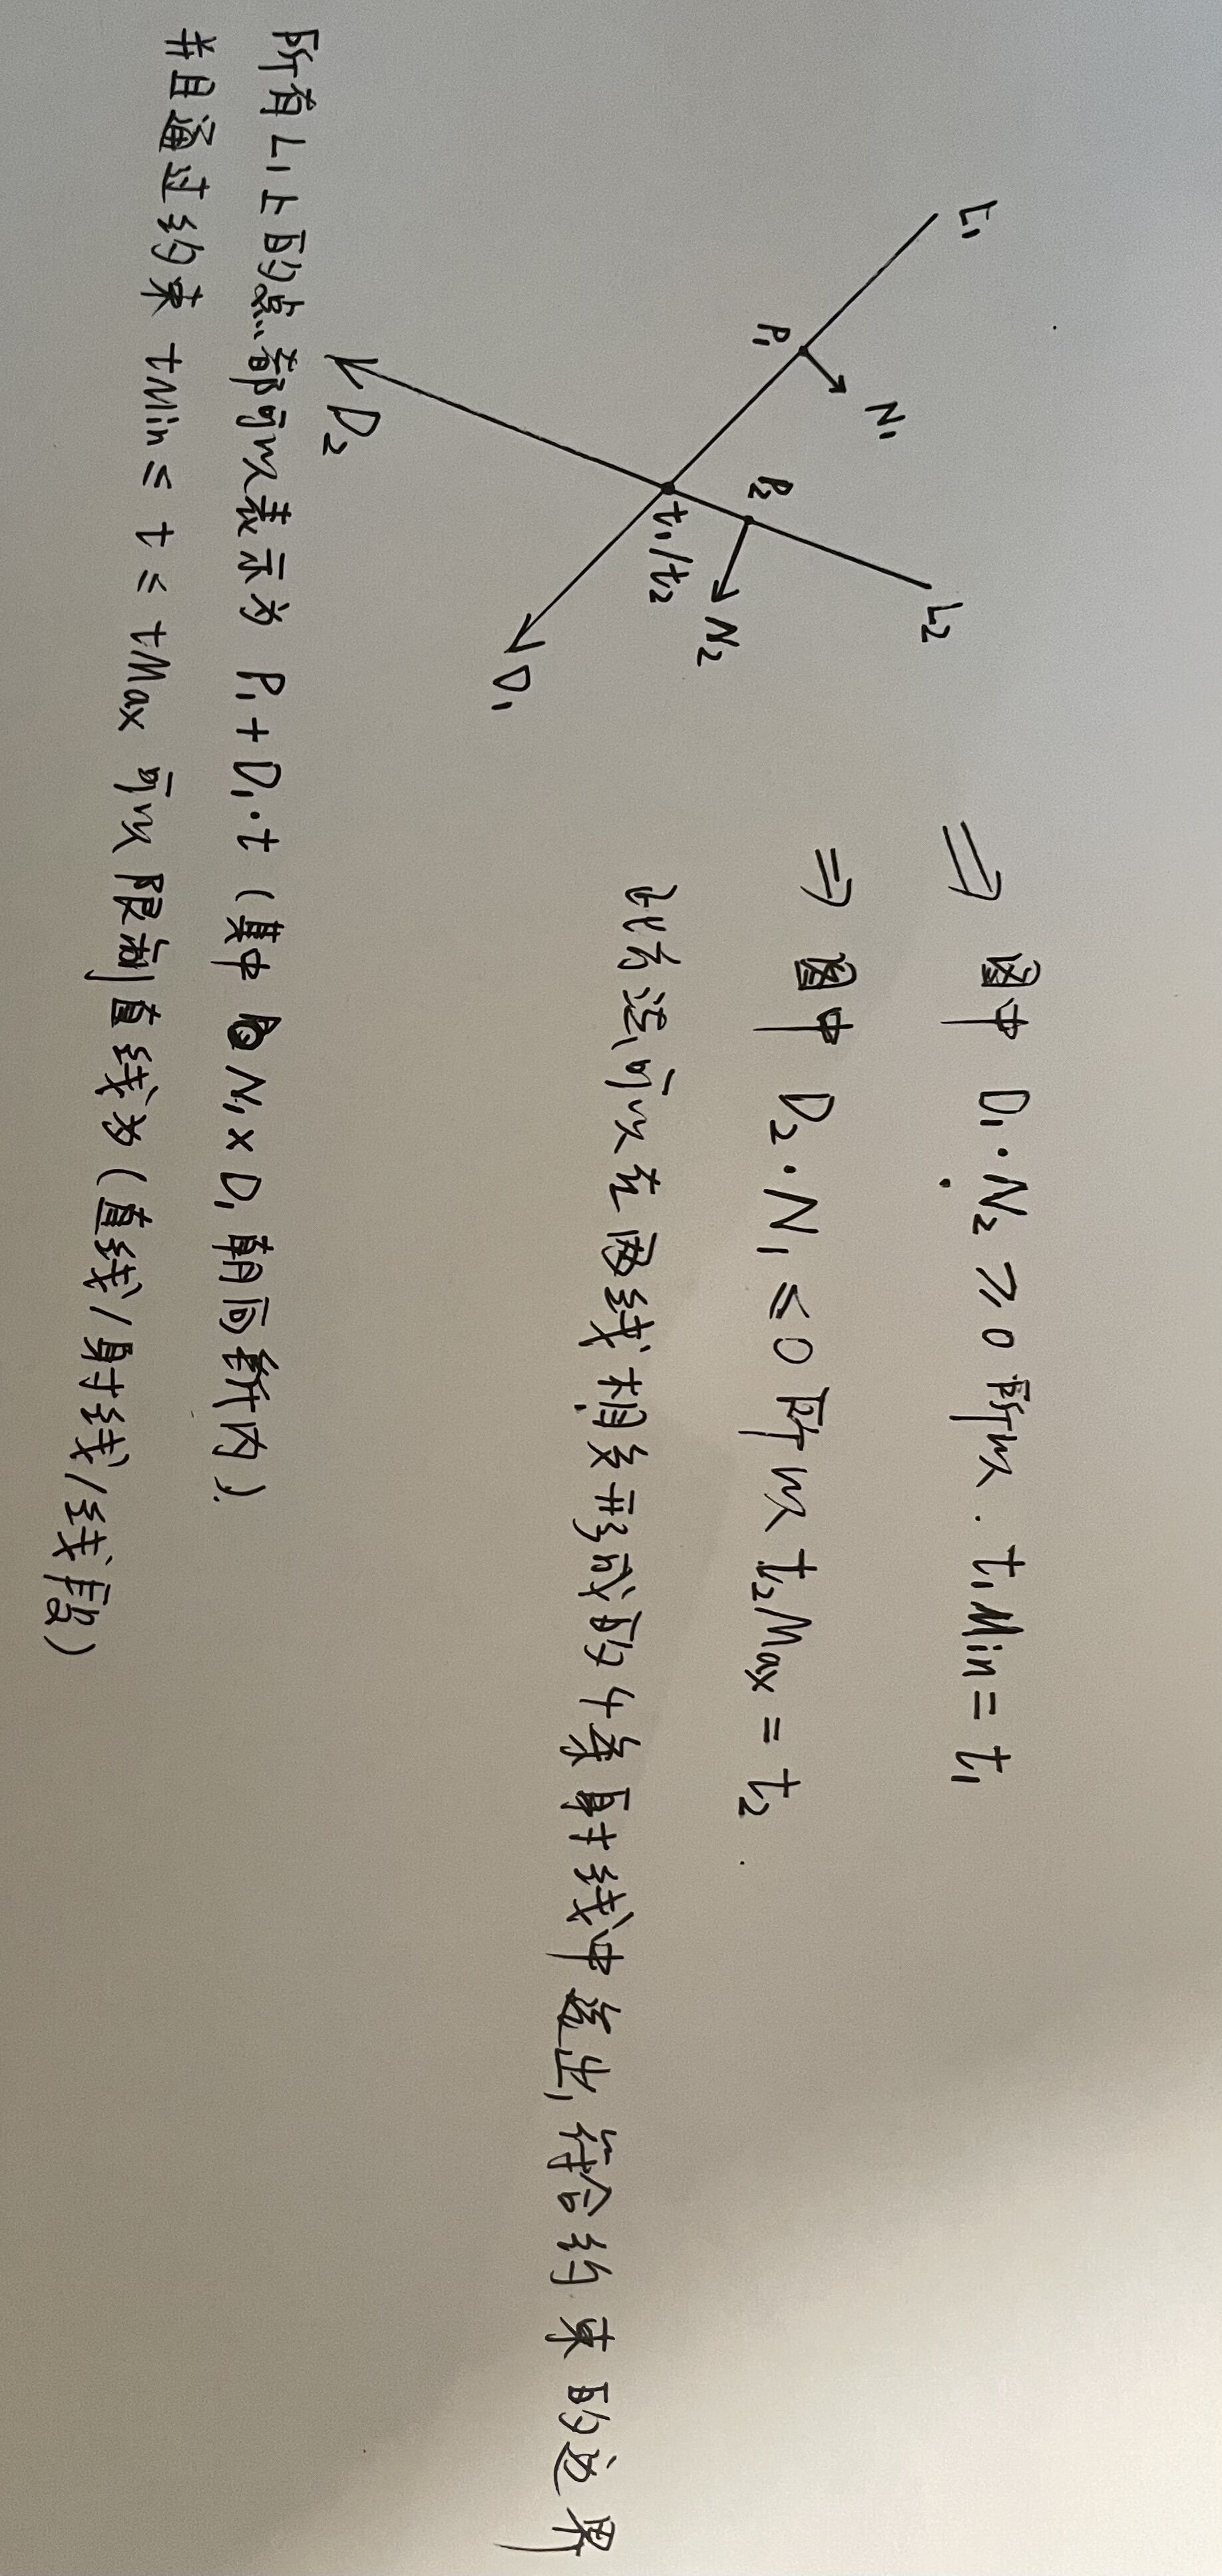 L₁
L₂
N₁
P₁
P₂
N₂
t₁/t₂
D₁
D₂
⇒ 图中 D₁·N₂ ≥ 0 所以. t₁Min = t₁
⇒ 图中 D₂·N₁ ≤ 0 所以 t₂Max = t₂.
此方法可以在两线相交形成的4条射线中选出符合约束的边界
所有L₁上的点都可以表示为 P₁+D₁·t (其中 N₁×D₁ 朝向纸内).
并且通过约束 tMin ≤ t ≤ tMax 可以限制直线为(直线/射线/线段)